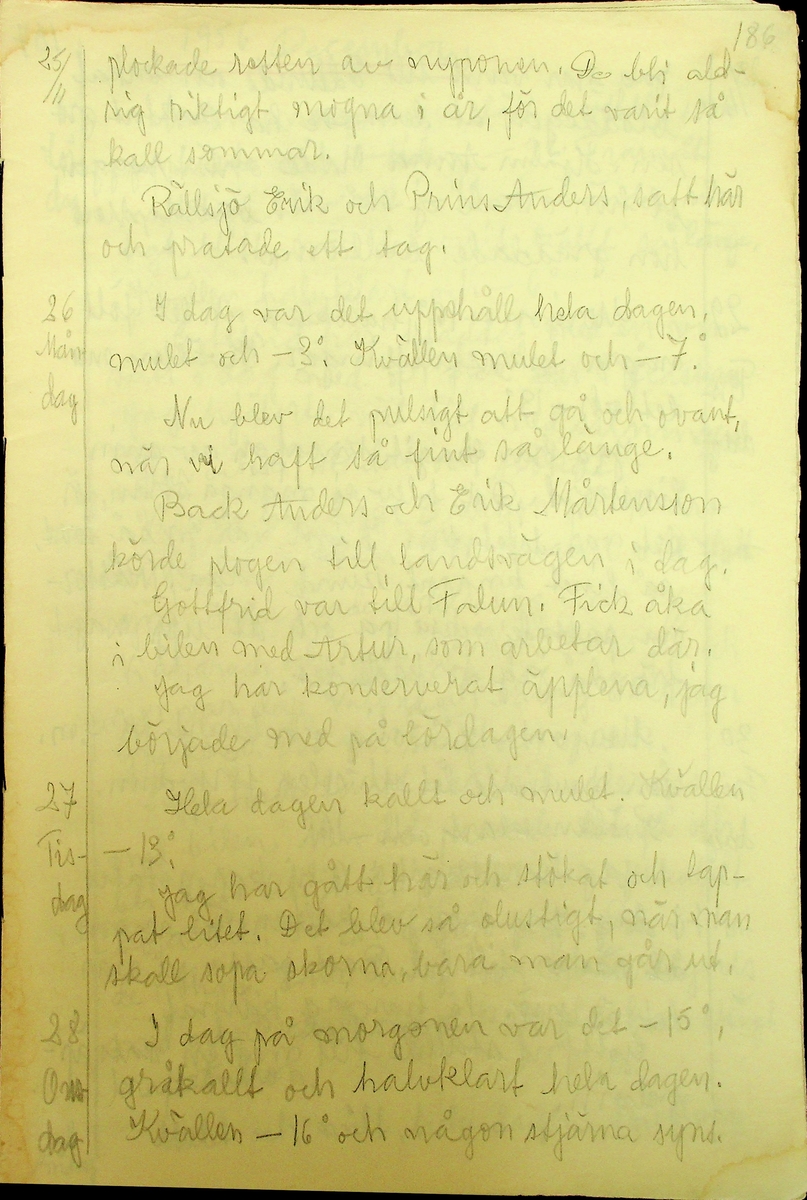 186
25/11 plockade resten av nyponen. De bli ald-
rig riktigt mogna i år, för det varit så
kall sommar.
Rällsjö Erik och Prins Anders, satt här
och pratade ett tag.
26 I dag var det uppehåll hela dagen,
Mån mulet och -3°. Kvällen mulet och -7°.
dag
Nu blev det pulsigt att gå och ovant,
när vi haft så fint så länge.
Back Anders och Erik Mårtensson
körde plogen till landsvägen i dag.
Gottfrid var till Falun. Fick åka
i bilen med Artur, som arbetar där.
Jag har konserverat äpplena, jag
började med på lördagen.
27 Hela dagen kallt och mulet. Kvällen
Tis- -13°.
dag Jag har gått här och stökat och lap-
pat litet. Det blev så olustigt, när man
skall sopa skorna, bara man går ut.
28 I dag på morgonen var det -15°,
Ons gråkallt och halvklart hela dagen.
dag Kvällen -16° och någon stjärna syns.